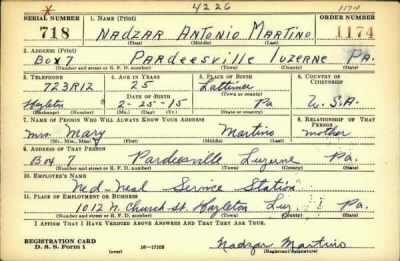 * 4226 1174
SERIAL NUMBER 1. NAME (Print) ORDER NUMBER
718 NADZAR ANTONIO MARTINO 1174
(First) (Middle) (Last)
2. ADDRESS (Print)
Box 7 PARDEESVILLE LUZERNE PA.
(Number and street or R. F. D. number) (Town) (County) (State)
3. TELEPHONE 4. AGE IN YEARS 5. PLACE OF BIRTH 6. COUNTRY OF CITIZENSHIP
723R12 25 Lattimer
DATE OF BIRTH (Town or county)
Hazleton 2-25-15 Pa U.S.A.
(Exchange) (Number) (Mo.) (Day) (Yr.) (State or country)
7. NAME OF PERSON WHO WILL ALWAYS KNOW YOUR ADDRESS 8. RELATIONSHIP OF THAT PERSON
Mrs. Mary Martino mother
(Mr., Mrs., Miss) (First) (Middle) (Last)
9. ADDRESS OF THAT PERSON
Box 7 Pardeesville Luzerne Pa.
(Number and street or R. F. D. number) (Town) (County) (State)
10. EMPLOYER'S NAME
Ned-Neal Service Station
11. PLACE OF EMPLOYMENT OR BUSINESS
1012 N. Church St. Hazleton Luz. Pa.
(Number and street or R. F. D. number) (Town) (County) (State)
I AFFIRM THAT I HAVE VERIFIED ABOVE ANSWERS AND THAT THEY ARE TRUE.
REGISTRATION CARD
D. S. S. Form 1 (over) 16-17105
Nadzar Martino
(Registrant's signature)